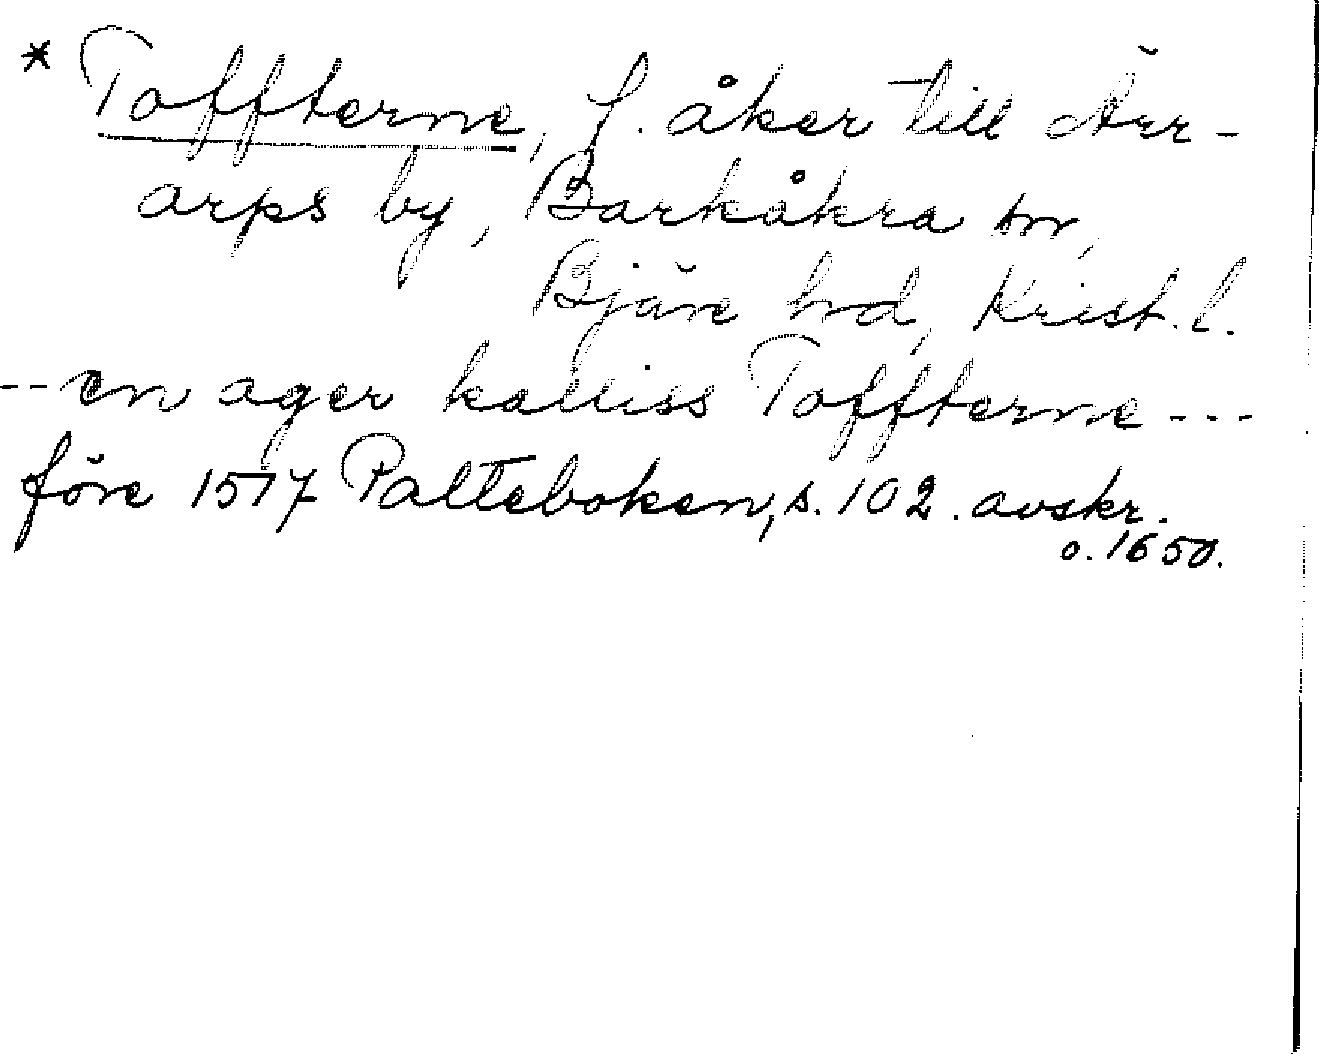 * Toffterne, f. åker till Ärr-
arps by, Barkåkra sn,
Bjäre hd, Krist. l.
-- en ager kalliss Toffterne ---
före 1517 Palteboken, s. 102. avskr.
o. 1650.